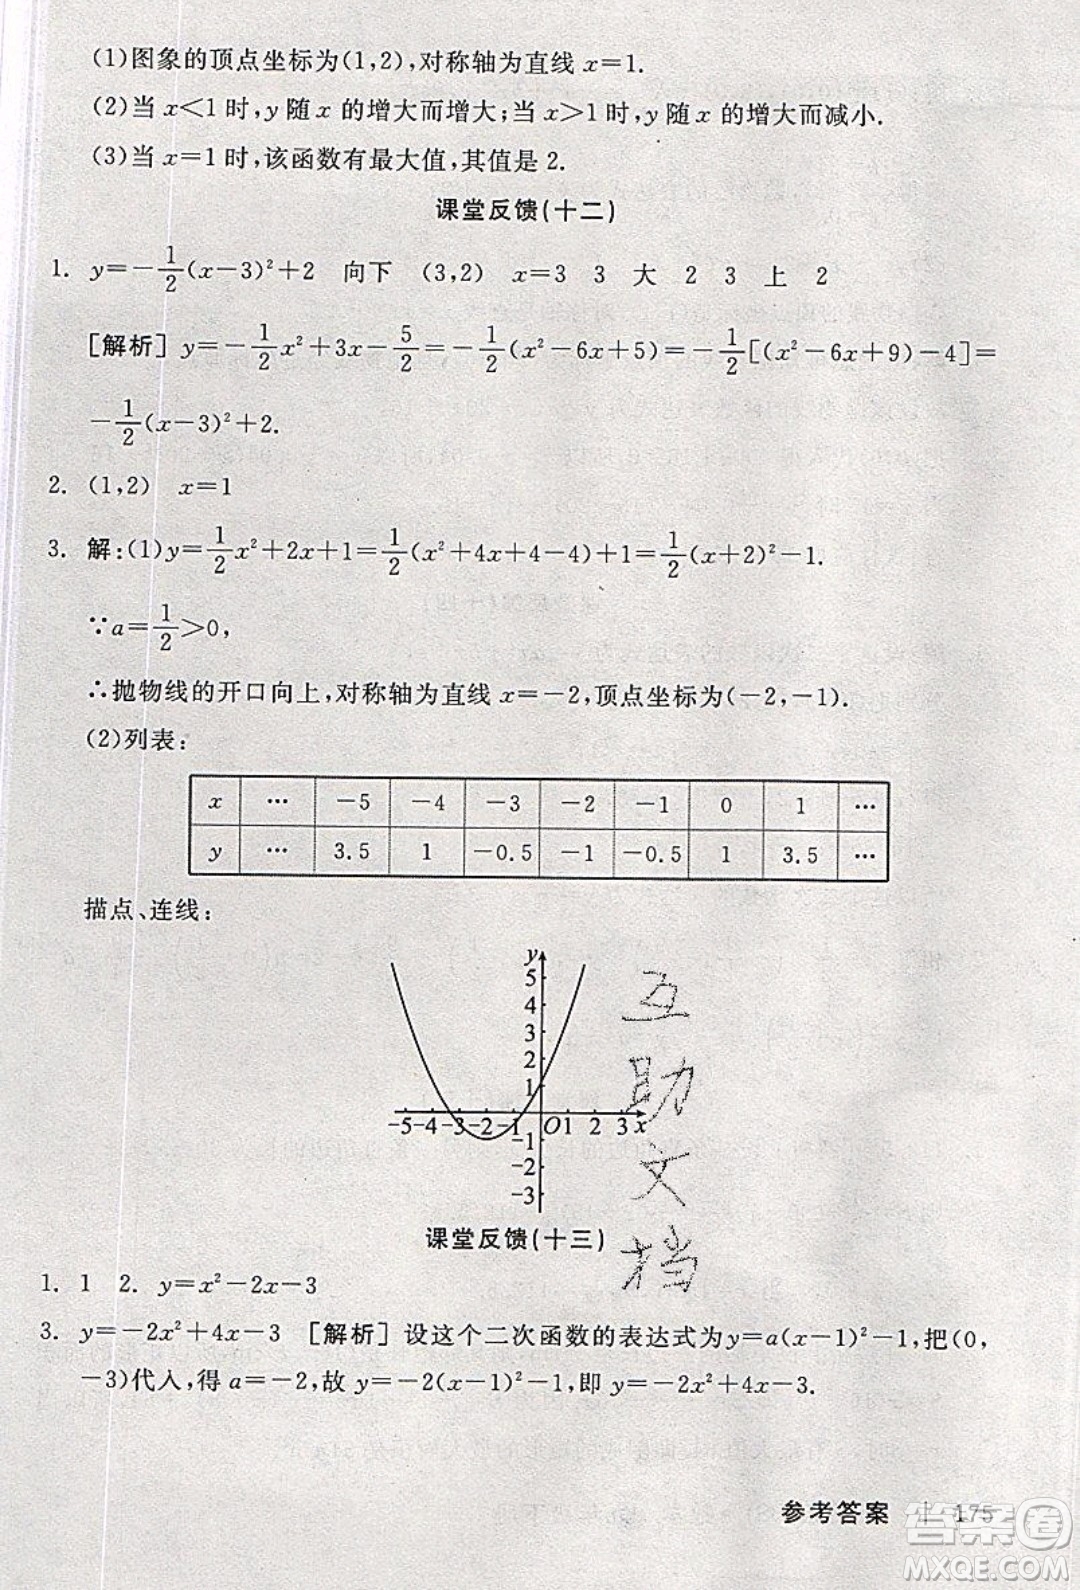 (1)图象的顶点坐标为(1,2),对称轴为直线 x=1.
(2)当 x<1 时,y 随 x 的增大而增大;当 x>1 时,y 随 x 的增大而减小.
(3)当 x=1 时,该函数有最大值,其值是 2.
课堂反馈(十二)
1. y=-1/2(x-3)²+2 向下 (3,2) x=3 3 大 2 3 上 2
[解析] y=-1/2x²+3x-5/2=-1/2(x²-6x+5)=-1/2[(x²-6x+9)-4]=
-1/2(x-3)²+2.
2. (1,2) x=1
3. 解:(1)y=1/2x²+2x+1=1/2(x²+4x+4-4)+1=1/2(x+2)²-1.
∵a=1/2>0,
∴抛物线的开口向上,对称轴为直线 x=-2,顶点坐标为(-2,-1).
(2)列表:
x … -5 -4 -3 -2 -1 0 1 …
y … 3.5 1 -0.5 -1 -0.5 1 3.5 …
描点、连线:
y
5
4
3
2
1
-5 -4 -3 -2 -1 O 1 2 3 x
-1
-2
-3
互
助
文
档
课堂反馈(十三)
1. 1 2. y=x²-2x-3
3. y=-2x²+4x-3 [解析] 设这个二次函数的表达式为 y=a(x-1)²-1,把(0,
-3)代入,得 a=-2,故 y=-2(x-1)²-1,即 y=-2x²+4x-3.
参考答案 175
答案圈
MXQE.COM